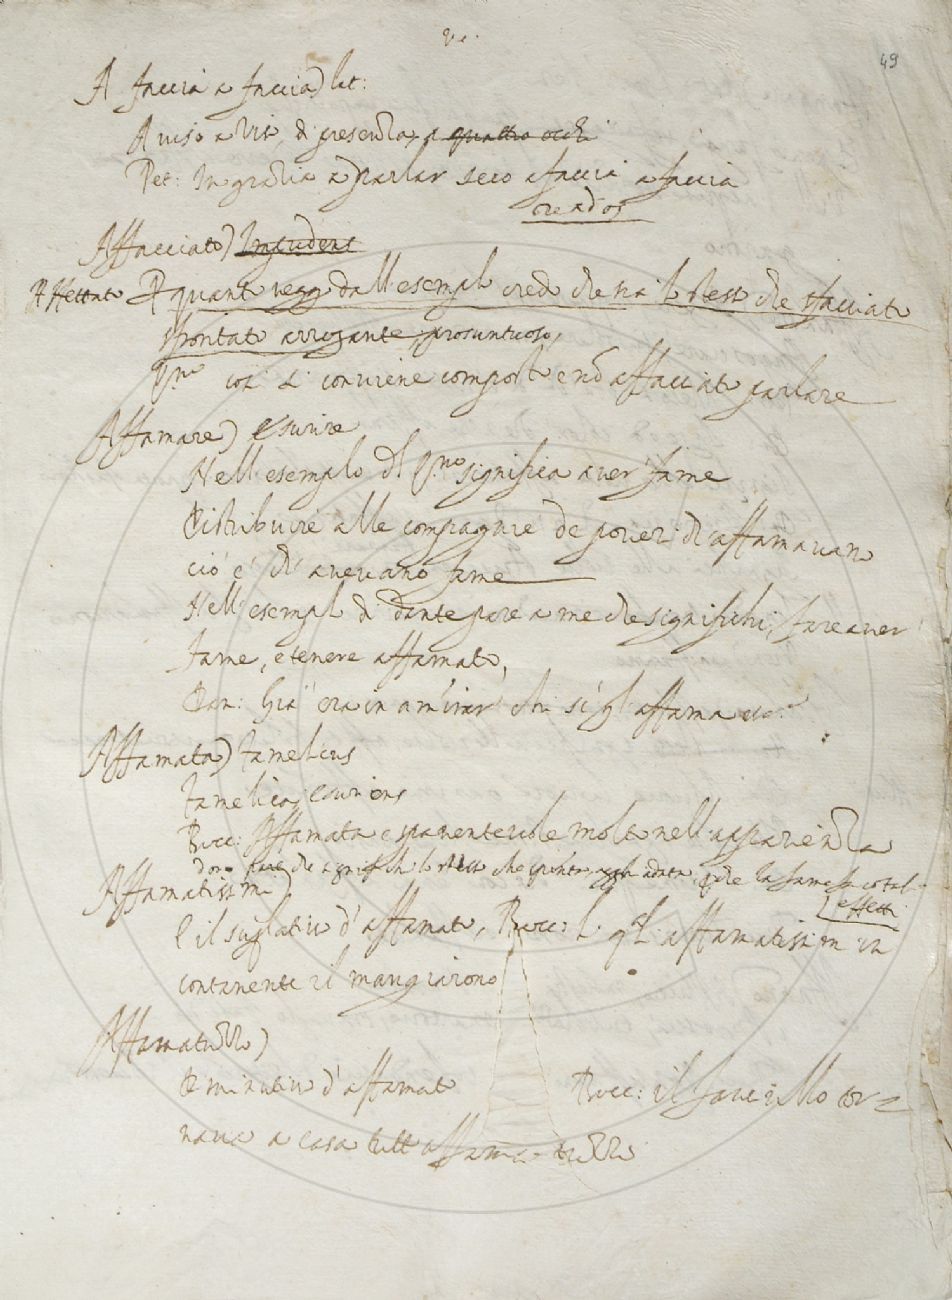 49
A faccia a faccia) lat:
A viso a viso, di presenza, a quattro occhi
Pet: In grazia a parlar seco a faccia a faccia
Affacciato) Impudens
Affettato
A quanto vegg dall'esempl cred che sia lo stess che sfacciato
sfrontato arrogante, prosuntuoso,
così si conviene composto e nō affacciato parlare
Affamare) esurire
Nell'esemplo di significa aver fame
Distribuire alle compagnie de poveri ch'affamavano
cio è ch'avevano fame
Nell'esempl di Dante pare a me che significhi, fare aver
fame, e tenere affamato,
Dan: Già era in ammirar che sì gl'affama
Affamata) famelicus
famelica, esuriens
Bocc: Affamata e spaventevole molto nell'apparenza
pare che significhi lo stess che la fame fa cotal
effetti
Affamatissimo)
È il suplativo d'affamato, Bocc: affamatissim in
contanente il mangiarono
Affamatuzzo)
Diminutivo d'affamato Bocc: il fancillo tor=
nava a casa tutto affama-tuzzo